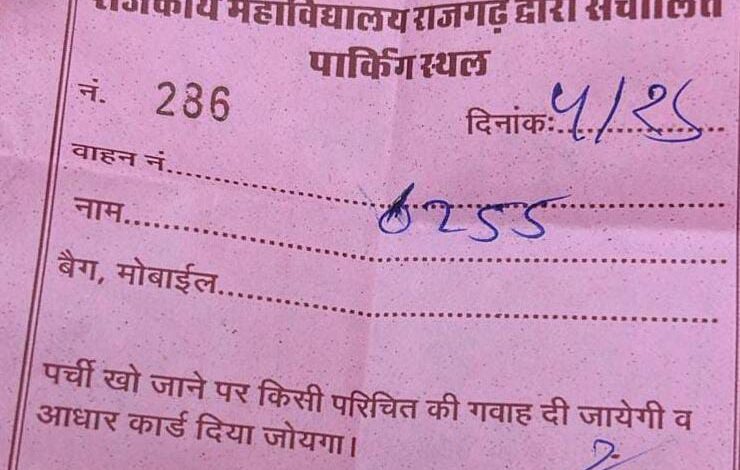 राजकीय महाविद्यालय राजगढ़ द्वारा संचालित
पार्किंग स्थल
नं. 286
दिनांकः
वाहन नं.
नाम 6255
बैग, मोबाईल
पर्ची खो जाने पर किसी परिचित की गवाह दी जायेगी व
आधार कार्ड दिया जोयगा।